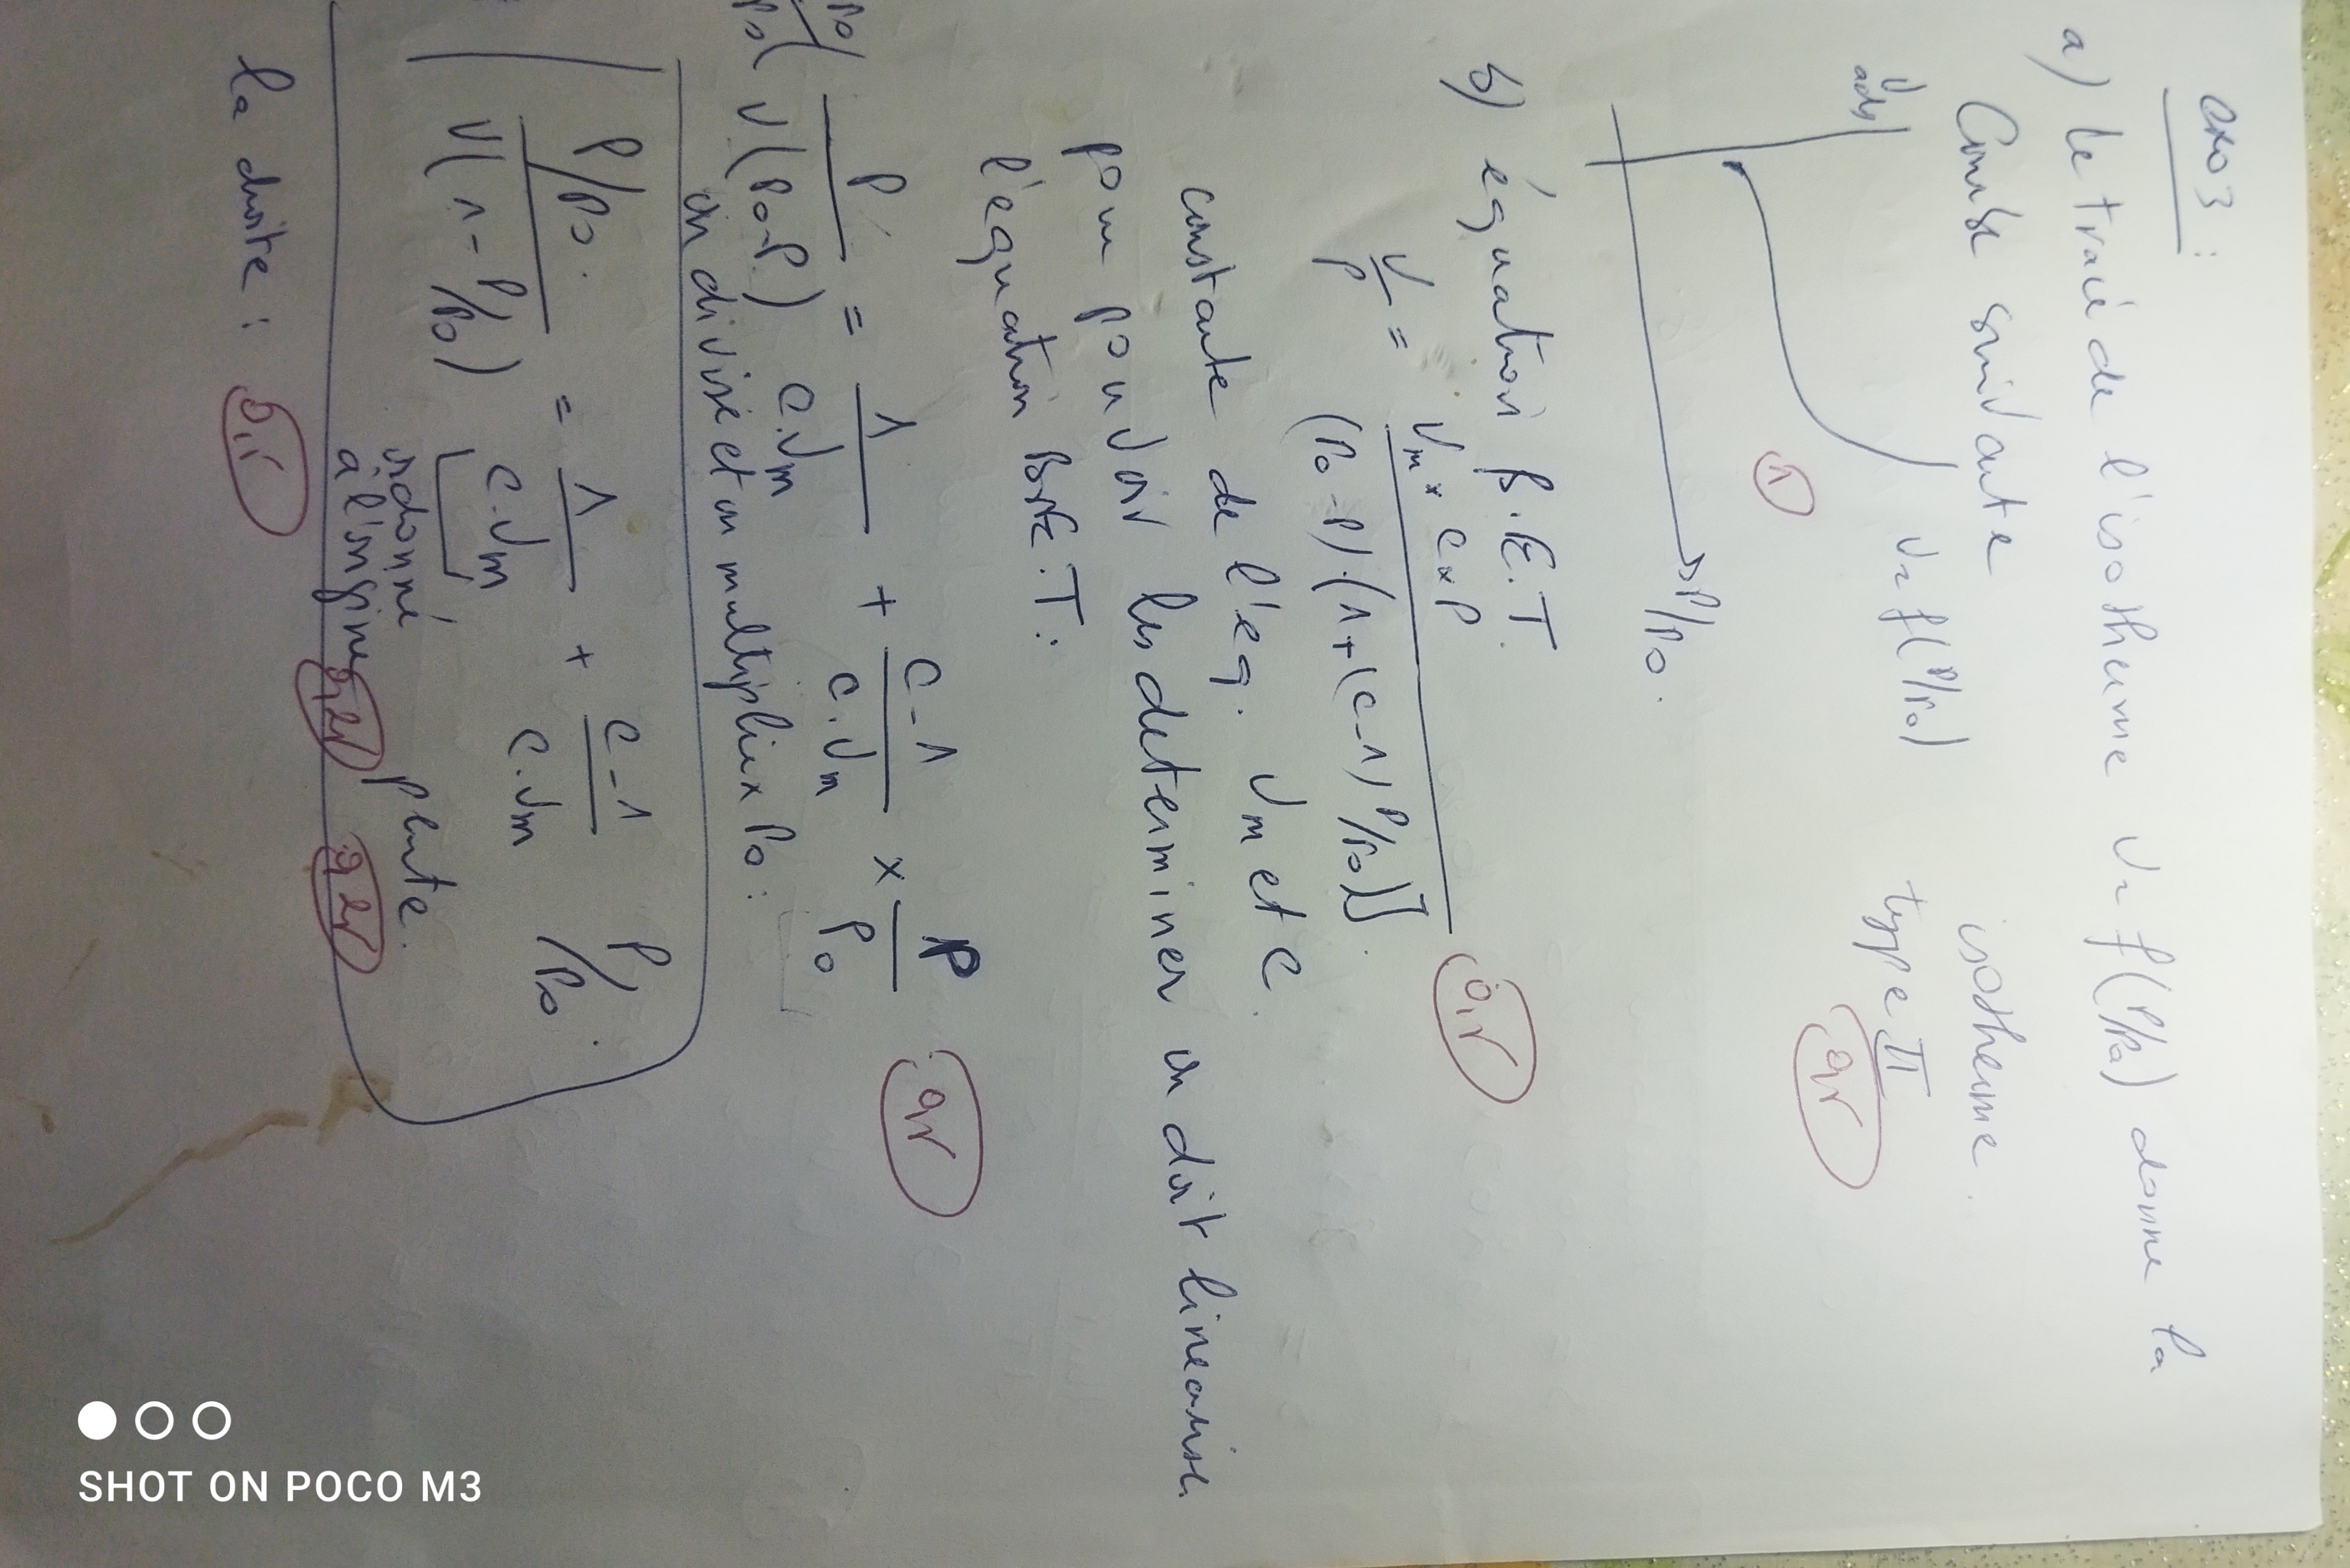 exo 3 :
a) Le tracé de l'isotherme V = f(P/P0) donne la
Courbe suivante
V ads
V = f(P/P0)
isotherme
type II
0,5
1
P/P0.
b) équation B.E.T.
V/P = Vm x C x P / (P0 - P).(1+(C-1)P/P0)]
0,5
constante de l'eq. Vm et C.
pour pouvoir les determiner on doit linearise
l'equation B.E.T :
P / V(P0-P) = 1 / C.Vm + C-1 / C.Vm x P / P0
0,5
on divise et on multiplie x P0 :
P/P0. / V(1 - P/P0) = 1 / C.Vm + C-1 / C.Vm P/P0.
ordonné
à l'origine
0,25
pente.
0,25
la droite :
0,5
SHOT ON POCO M3